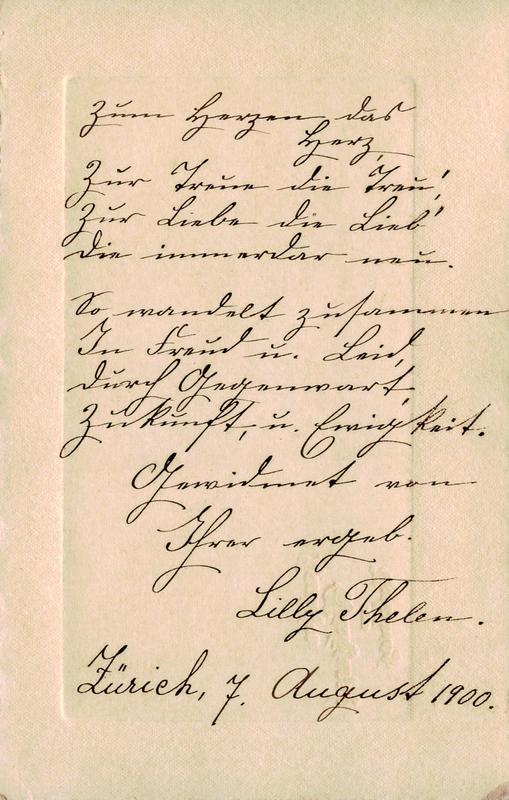 Zum Herzen das
Herz,
Zur Treue die Treu',
Zur Liebe die Lieb'
Die immerdar neu.
So wandelt zusammen
In Freud u. Leid,
durch Gegenwart,
Zukunft, u. Ewigkeit.
Gewidmet von
Ihrer ergeb.
Lilly Thelen.
Zürich, 7. August 1900.